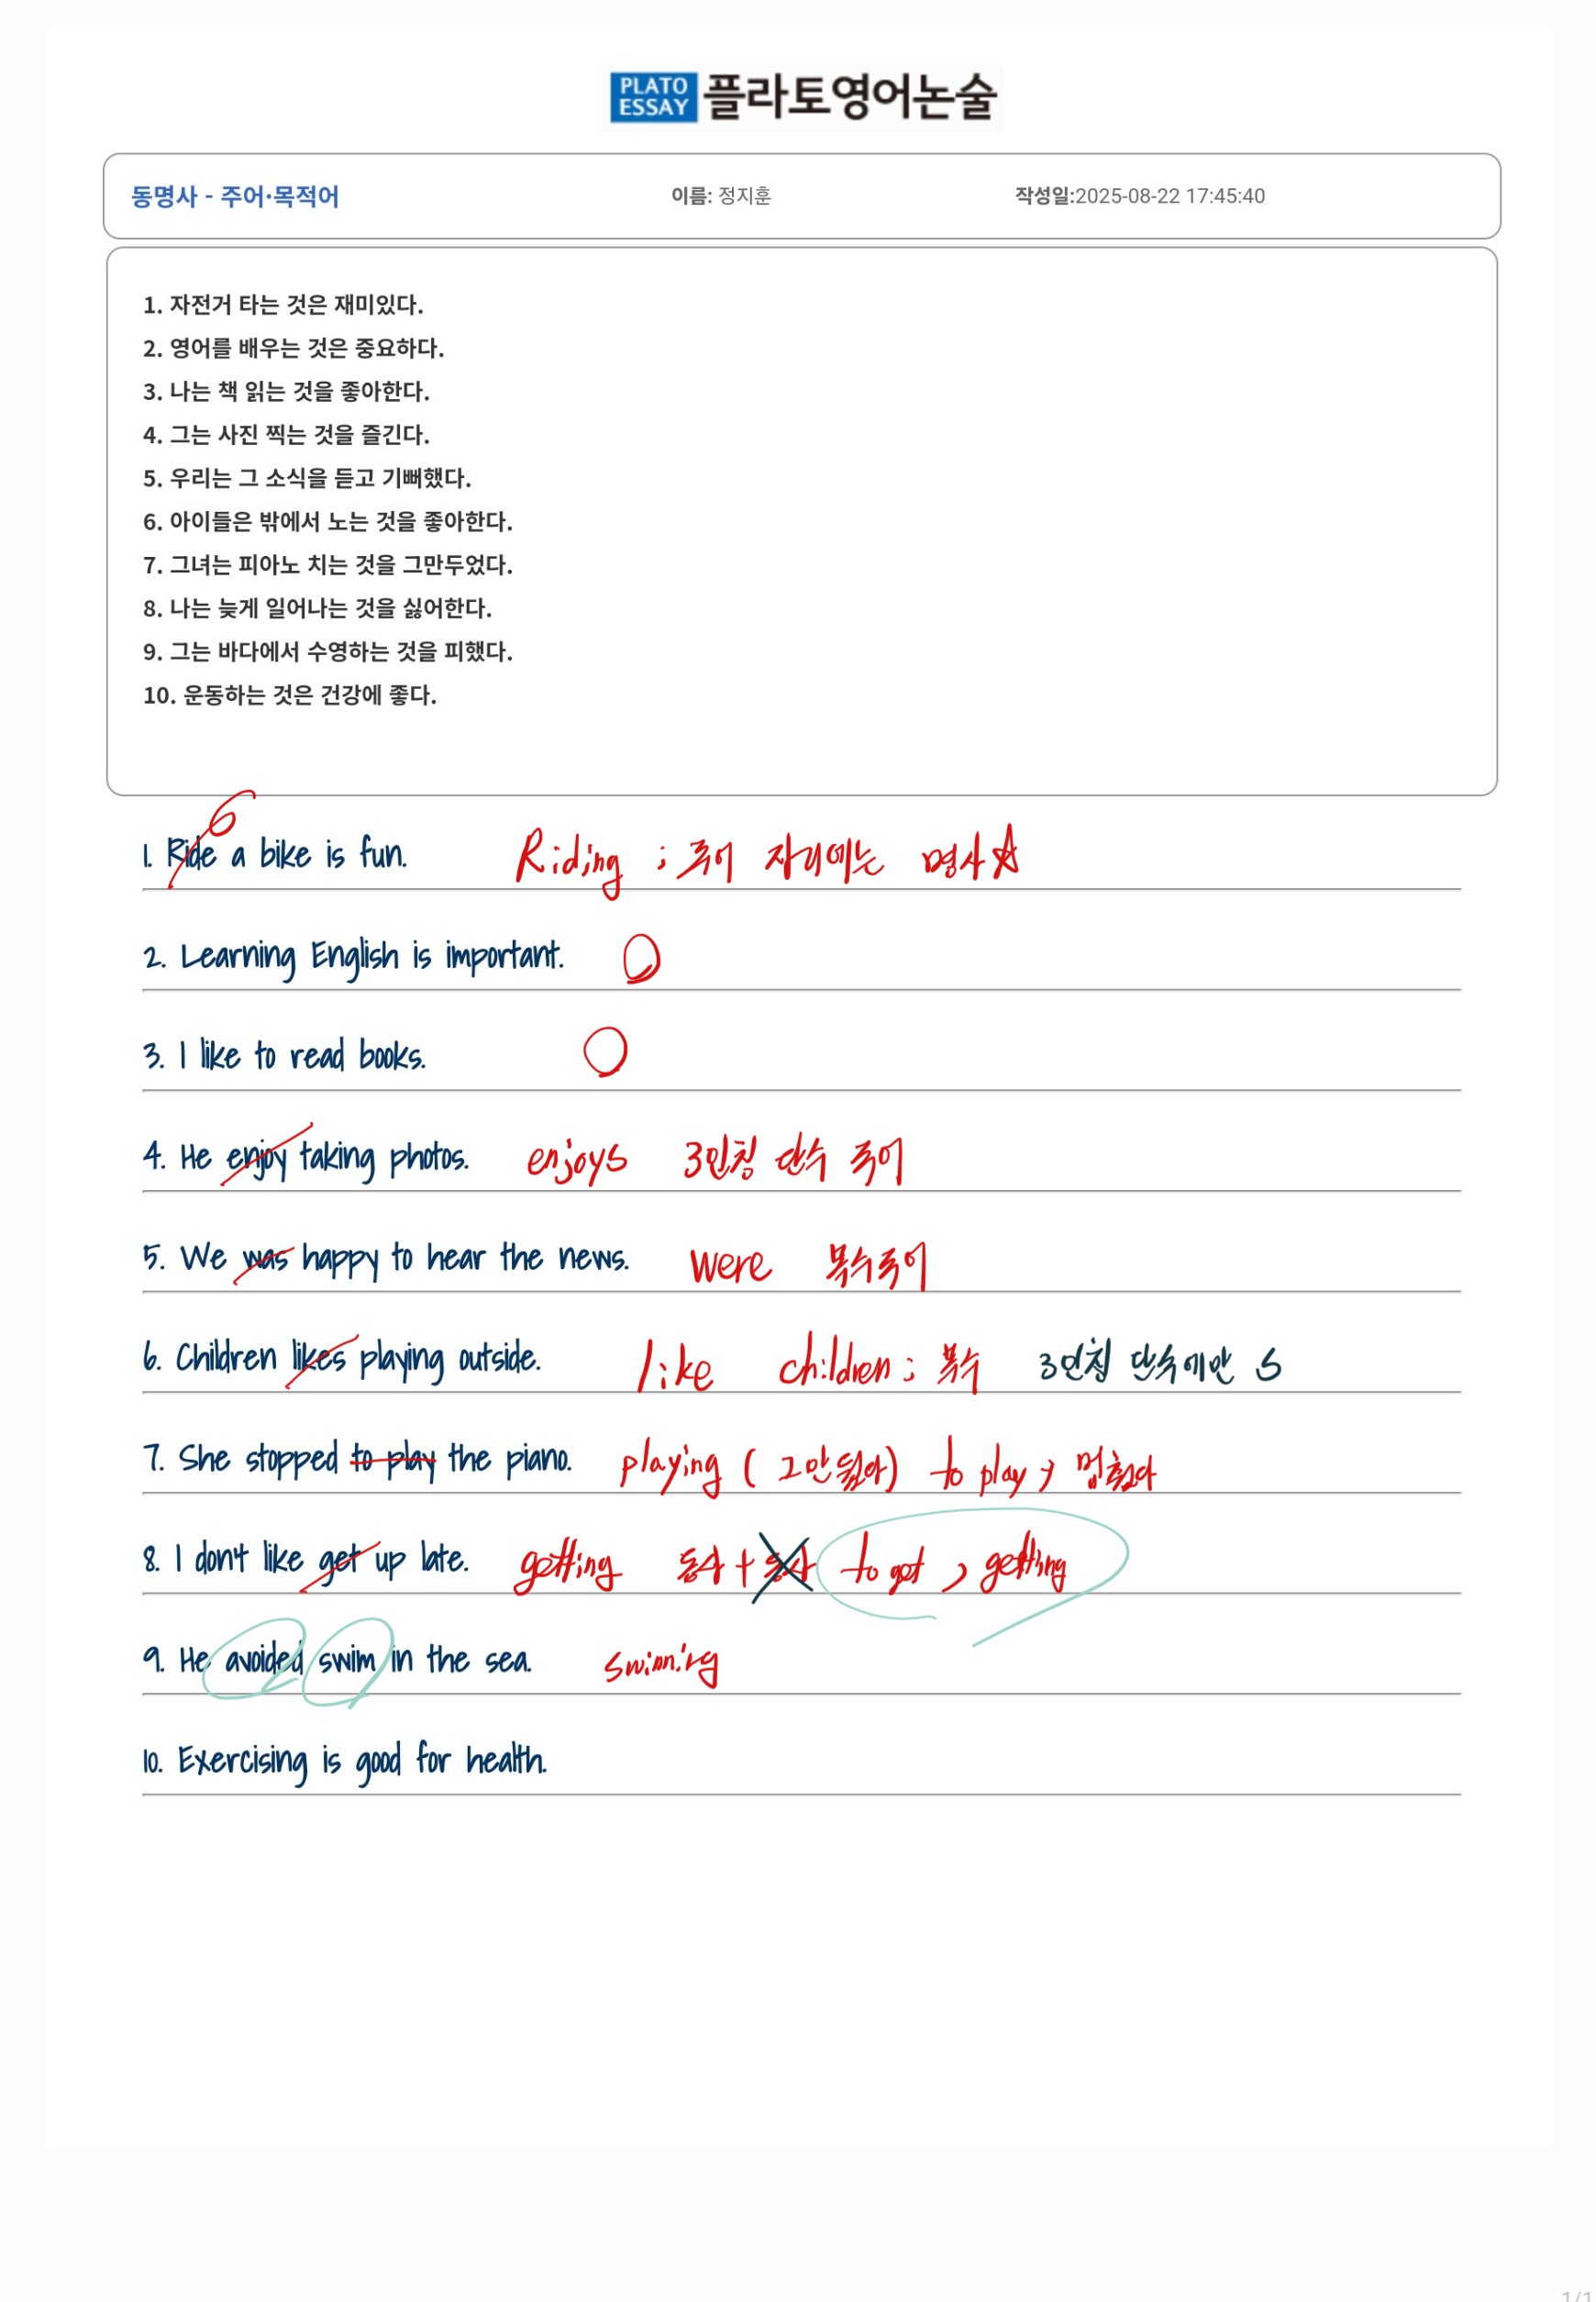 PLATO ESSAY 플라토영어논술
동명사 - 주어·목적어 이름: 정지훈 작성일:2025-08-22 17:45:40
1. 자전거 타는 것은 재미있다.
2. 영어를 배우는 것은 중요하다.
3. 나는 책 읽는 것을 좋아한다.
4. 그는 사진 찍는 것을 즐긴다.
5. 우리는 그 소식을 듣고 기뻐했다.
6. 아이들은 밖에서 노는 것을 좋아한다.
7. 그녀는 피아노 치는 것을 그만두었다.
8. 나는 늦게 일어나는 것을 싫어한다.
9. 그는 바다에서 수영하는 것을 피했다.
10. 운동하는 것은 건강에 좋다.
6
1. Ride a bike is fun. Riding ; 주어 자리에는 명사
2. Learning English is important.
3. I like to read books.
4. He enjoy taking photos. enjoys 3인칭 단수 주어
5. We was happy to hear the news. were 복수주어
6. Children likes playing outside. like children ; 복수 3인칭 단수에만 S
7. She stopped to play the piano. playing ( 그만뒀다) to play > 멈췄다
8. I don't like get up late. getting 동사 + 동사 to get , getting
9. He avoided swim in the sea.
10. Exercising is good for health.
1/1